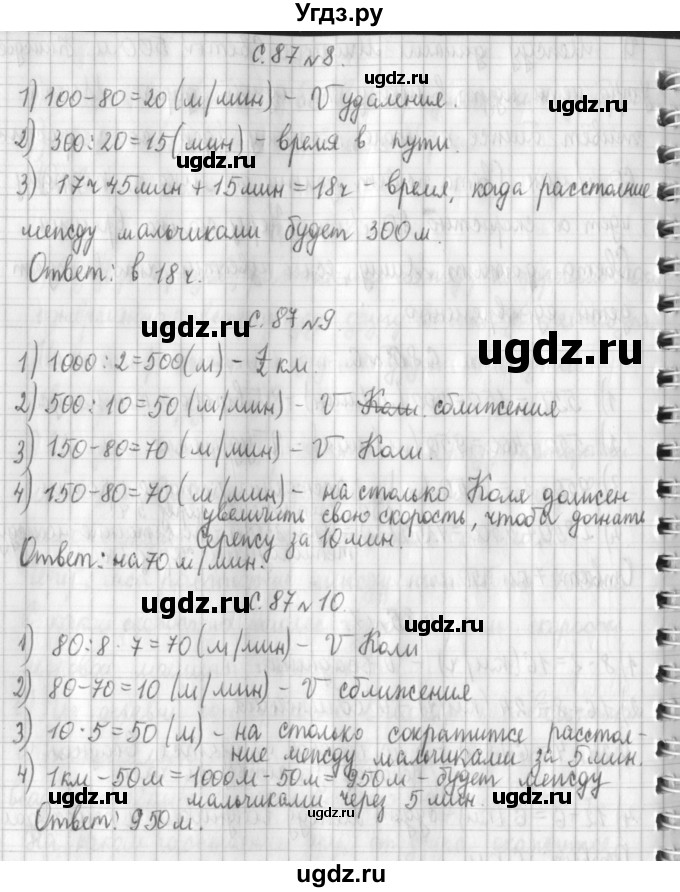 Угдз.ру
с. 87 №8.
ugdz.ru
1) 100-80=20 (м/мин) - V удаления.
ugdz.ru
2) 300:20=15 (мин) - время в пути.
ugdz.ru
3) 17ч 45мин + 15мин = 18ч - время, когда расстояние
между мальчиками будет 300м.
Ответ: в 18ч.
ugdz.ru
с. 87 №9.
ugdz.ru
1) 1000:2=500(м) - 1/2 км.
2) 500:10=50 (м/мин) - V Коли сближения
3) 150-80=70 (м/мин) - V Коли.
4) 150-80=70 (м/мин) - на столько Коля должен
увеличить свою скорость, чтобы догнать
Серёжу за 10мин.
Ответ: на 70 м/мин.
ugdz.ru
с. 87 №10.
ugdz.ru
1) 80:8·7=70 (м/мин) - V Коли
2) 80-70=10 (м/мин) - V сближения
3) 10·5=50 (м) - на столько сократится расстоя-
ние между мальчиками за 5мин.
4) 1км-50м=1000м-50м=950м - будет между
мальчиками через 5мин.
Ответ: 950м.
ugdz.ru
ugdz.ru
ugdz.ru